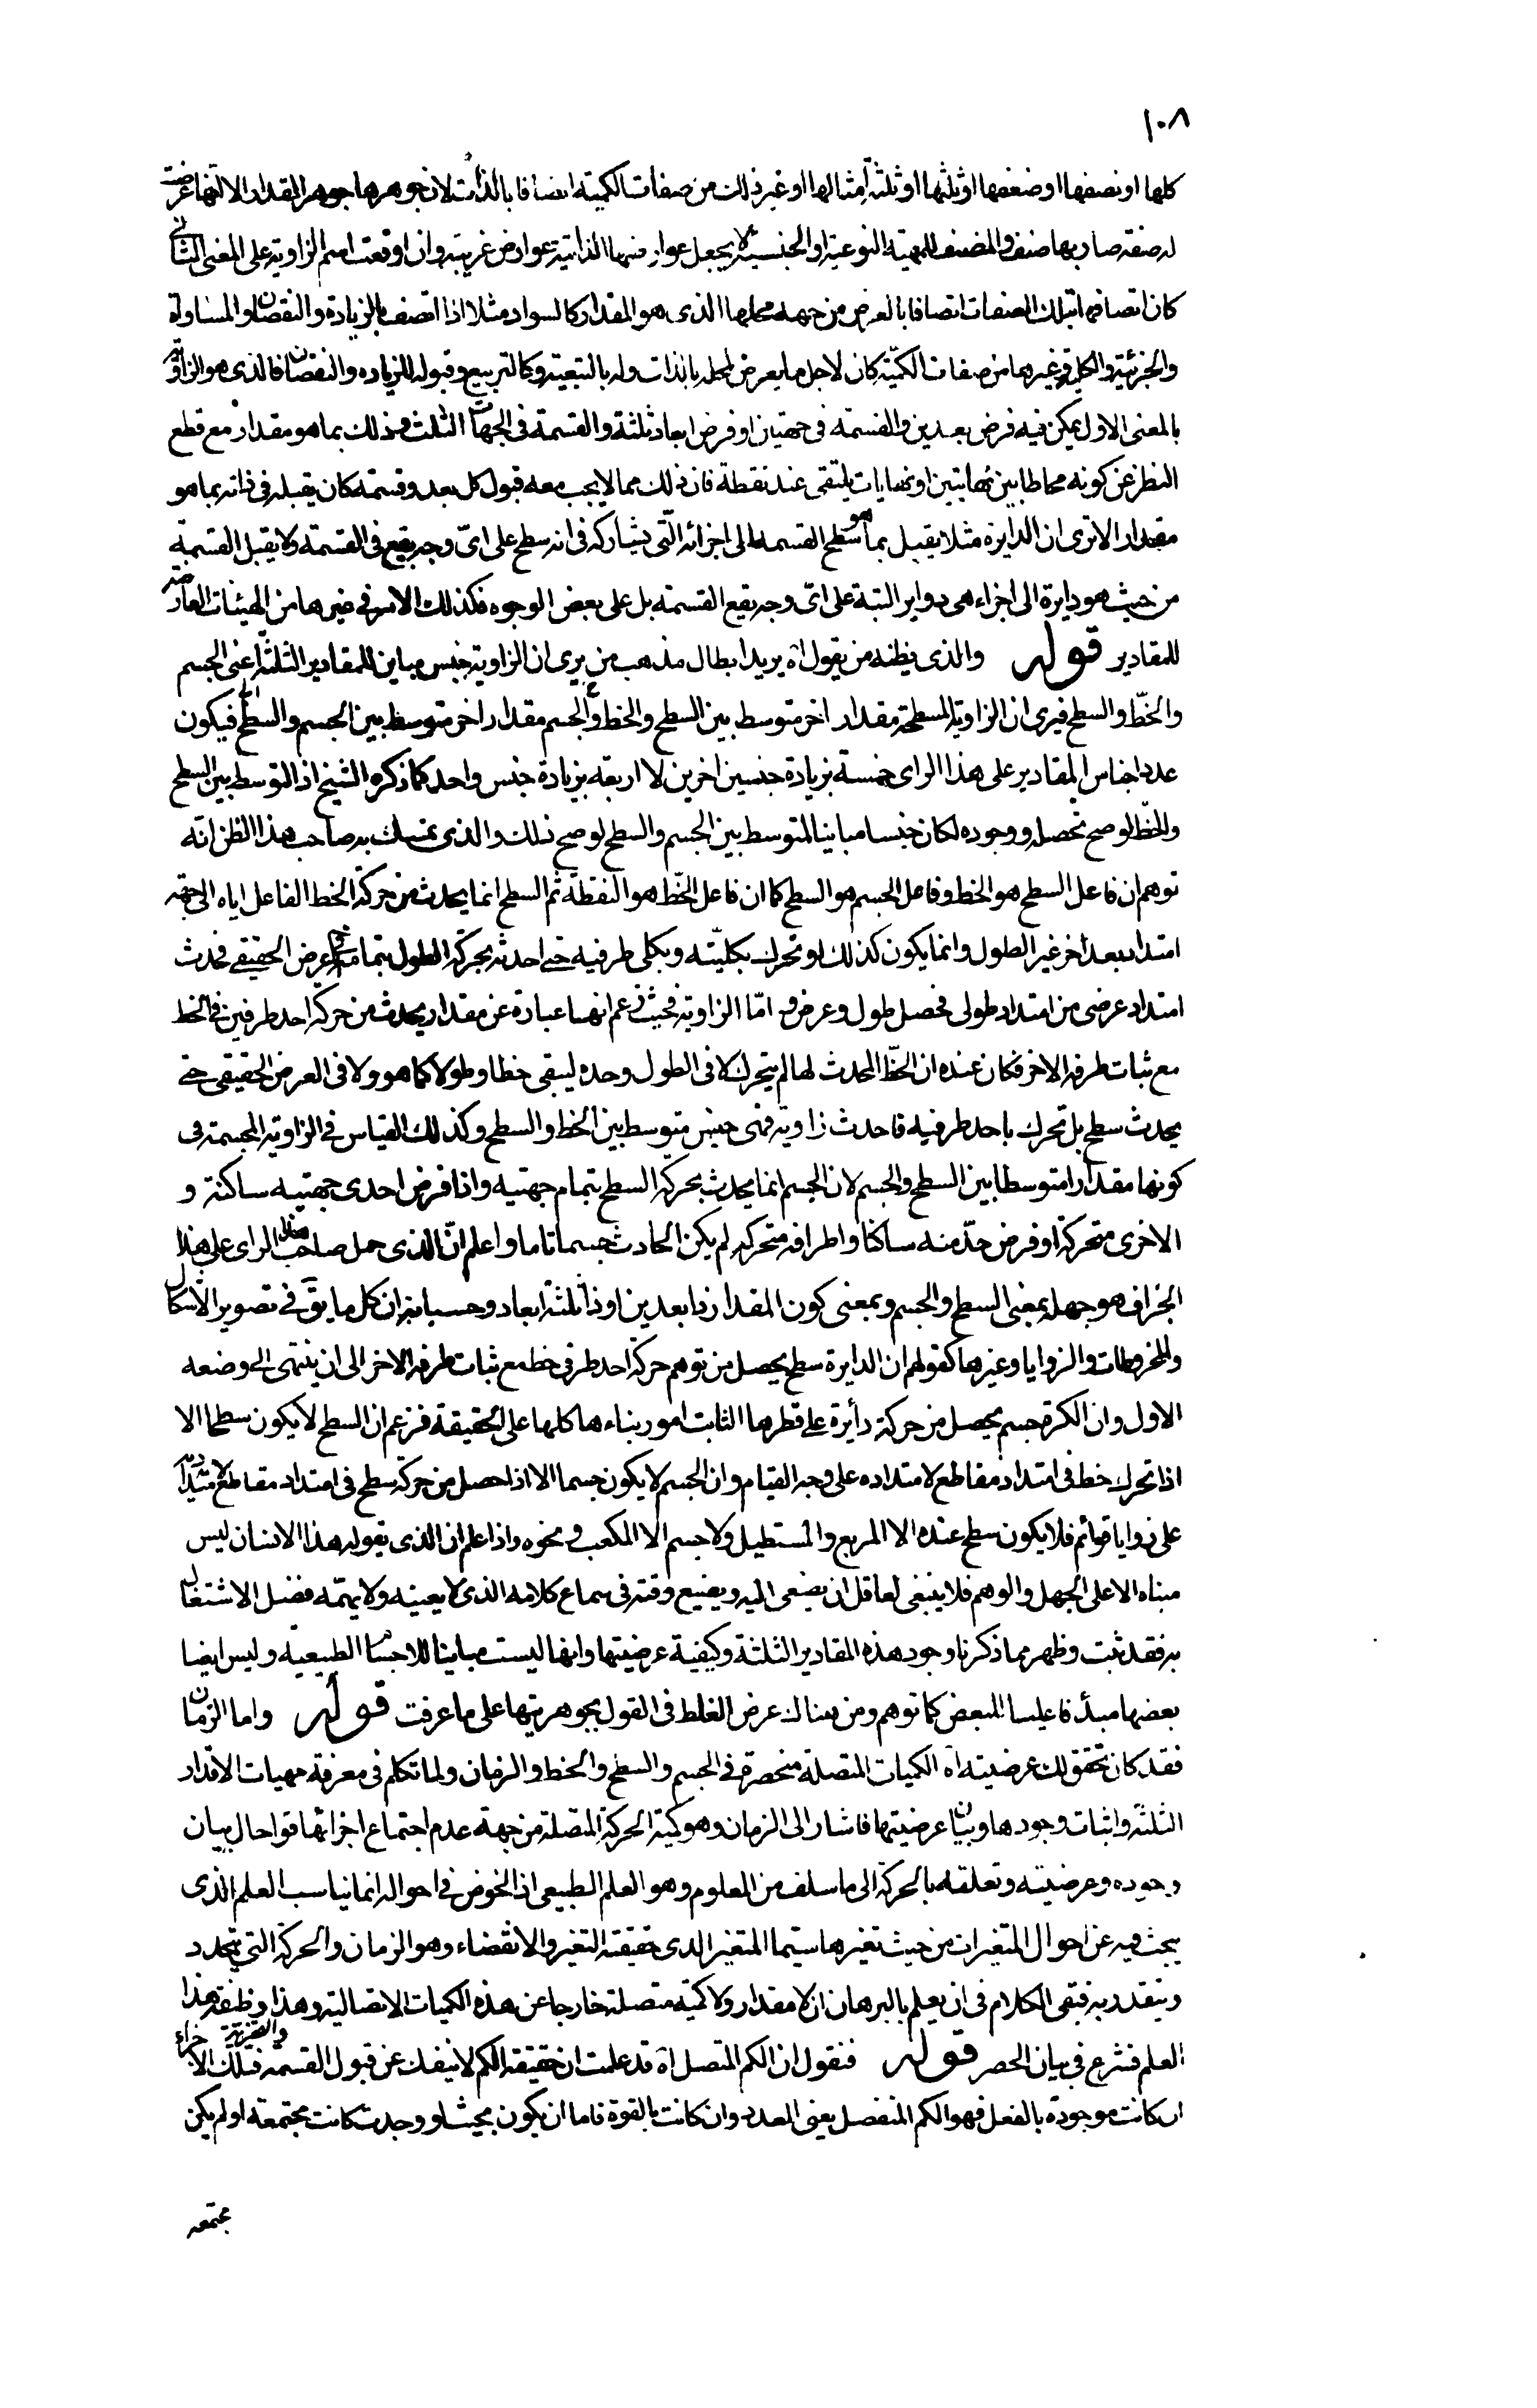 ١٠٨
كلها او نصفها او ضعفها او ثلثها او ثلثة امثالها او غير ذلك من صفات الكمية اتصافا بالذات لان جوهرها جوهر المقدار الا انها عرضت
له صفة صار بها صنفا والمصنف للمهية النوعية او الجنسية لا يجعل عوارضها الذاتية عوارض غريبة وان اوقعت اسم الزاوية على المعنى الثانى
كان اتصافها بتلك الصفات اتصافا بالعرض من جهة محلها الذى هو المقدار كالسواد مثلا اذا اتصف بالزيادة والنقصان والمساواة
والجزئية والكلية وغيرهما من صفات الكمية كان لاجل ما يعرض لمحله بالذات وله بالتبعية وكالتربيع وقبوله للزيادة والنقصان فالذى هو الزاوية
بالمعنى الاول يمكن فيه فرض بعدين والقسمة فى جهتين او فرض ابعاد ثلثة والقسمة فى الجهات الثلث وذلك بما هو مقدار مع قطع
النظر عن كونه محاطا بين نهايتين او نهايات يلتقى عند نقطة فان ذلك مما لا يجب معه قبول كل بعد وقسمة كان يقبله فى ذاته بما هو
مقدار الا ترى ان الدايرة مثلا يقبل بما هو سطح القسمة الى اجزائه التى يشاركه فى انه سطح على اى وجه يقع فى القسمة ولا يقبل القسمة
من حيث هو دايرة الى اجزاء هى دواير البتة على اى وجه يقع القسمة بل على بعض الوجوه فكذلك الامر فى غيرها من الهيئات العارضة
للمقادير قوله والذى يظنه من يقول اه يريد ابطال مذهب من يرى ان الزاوية جنس مباين للمقادير الثلثة اعنى الجسم
والخط والسطح فيرى ان الزاوية المسطحة مقدار اخر متوسط بين السطح والخط والجسم مقدار اخر متوسط بين الجسم والسطح فيكون
عدد اجناس المقادير على هذا الراى خمسة بزيادة جنسين اخرين لا اربعة بزيادة جنس واحد كما ذكره الشيخ اذ المتوسط بين السطح
والخط لو صح تحصله ووجوده لكان جنسا مباينا للمتوسط بين الجسم والسطح لو صح ذلك والذى تمسك به صاحب هذا الظن انه
توهم ان فاعل السطح هو الخط وفاعل الجسم هو السطح كما ان فاعل الخط هو النقطة ثم السطح انما يحدث من حركة الخط الفاعل اياه الى جهة
امتداد بعد اخر غير الطول وانما يكون كذلك لو تحرك بكليته وبكلى طرفيه حتى احدثه بحركة الطول بتمامه عرض الحقيقى فحدث
امتداد عرضى من امتداد طولى فحصل طول وعرض واما الزاوية فحيث زعم انها عبارة عن مقدار يحدث من حركة احد طرفين فى الخط
مع ثبات طرفه الاخر فكان عنده ان الخط المحدث لها لم يتحرك لا فى الطول وحده ليبقى خطا وطولا كما هو ولا فى العرض الحقيقى حتى
يحدث سطح بل تحرك باحد طرفيه فاحدث زاوية فهى جنس متوسط بين الخط والسطح وكذلك القياس فى الزاوية المجسمة فى
كونها مقدارا متوسطا بين السطح والجسم لان الجسم انما يحدث بحركة السطح بتمام جهتيه واذا فرض احدى جهتيه ساكنة و
الاخرى متحركة او فرض حد منه ساكنا واطرافه متحركة لم يكن الحادث جسما تاما واعلم ان الذى حمل صاحب هذا الراى على هذا
الجزاف هو جهله بمعنى السطح والجسم وبمعنى كون المقدار ذا بعدين او ذا ثلثة ابعاد وحسبانه ان كل ما يق فى تصوير الاشكال
والمخروطات والزوايا وغيرها كقولهم ان الدايرة سطح يحصل من توهم حركة احد طرفى خط مع ثبات طرفه الاخر الى ان ينتهى الى وضعه
الاول وان الكرة جسم يحصل من حركة دائرة على قطرها الثابت امور بناءها كلها على الحقيقة فزعم ان السطح لا يكون سطحا الا
اذا تحرك خط فى امتداد مقاطع لامتداده على وجه القيام وان الجسم لا يكون جسما الا اذا حصل من حركة سطح فى امتداد مقاطع لامتداديه
على زوايا قوائم فلا يكون سطح عنده الا المربع والمستطيل ولا جسم الا المكعب ونحوه واذا علم ان الذى يقوله هذا الانسان ليس
مبناه الا على الجهل والوهم فلا ينبغى لعاقل ان يصغى اليه ويضيع وقته فى سماع كلامه الذى لا يعينه ولا يهمه فضل الاشتغال
به فقد ثبت وظهر مما ذكرنا وجود هذه المقادير الثلثة وكيفية عرضيتها وانها ليست مباينا للاجسام الطبيعية وليس ايضا
بعضها مبدأ فاعليا للبعض كما توهم ومن هناك عرض الغلط فى القول بجوهريتها على ما عرفت قوله واما الزمان
فقد كان تحقق لك عرضيته اه الكميات المتصلة منحصرة فى الجسم والسطح والخط والزمان ولما تكلم فى معرفة مهيات الاقدار
الثلثة واثبات وجودها وبيان عرضيتها فاشار الى الزمان وهو كمية الحركة المتصلة من جهة عدم اجتماع اجزائها فواحال بيان
وجوده وعرضيته وتعلقه بالحركة الى ما سلف من العلوم وهو العلم الطبيعى اذ الخوض فى احواله انما يناسب العلم الذى
يبحث فيه عن احوال المتغيرات من حيث تغيرها سيما المتغير الذى حقيقته التغير والانقضاء وهو الزمان والحركة التى يتجدد
ويتقدر به فبقى الكلام فى ان يعلم بالبرهان ان لا مقدار ولا كمية متصلة خارجا عن هذه الكميات الاتصالية وهذا وظيفة هذا
العلم فشرع فى بيان الحصر قوله فنقول ان الكم المتصل اه قد علمت ان حقيقة الكم لا ينفك عن قبول القسمة والتجزية فتلك الاجزاء
ان كانت موجودة بالفعل فهو الكم المنفصل يعنى العدد وان كانت بالقوة فاما ان يكون بحيث لو وجدت كانت مجتمعة او لم يكن
مجتمعة